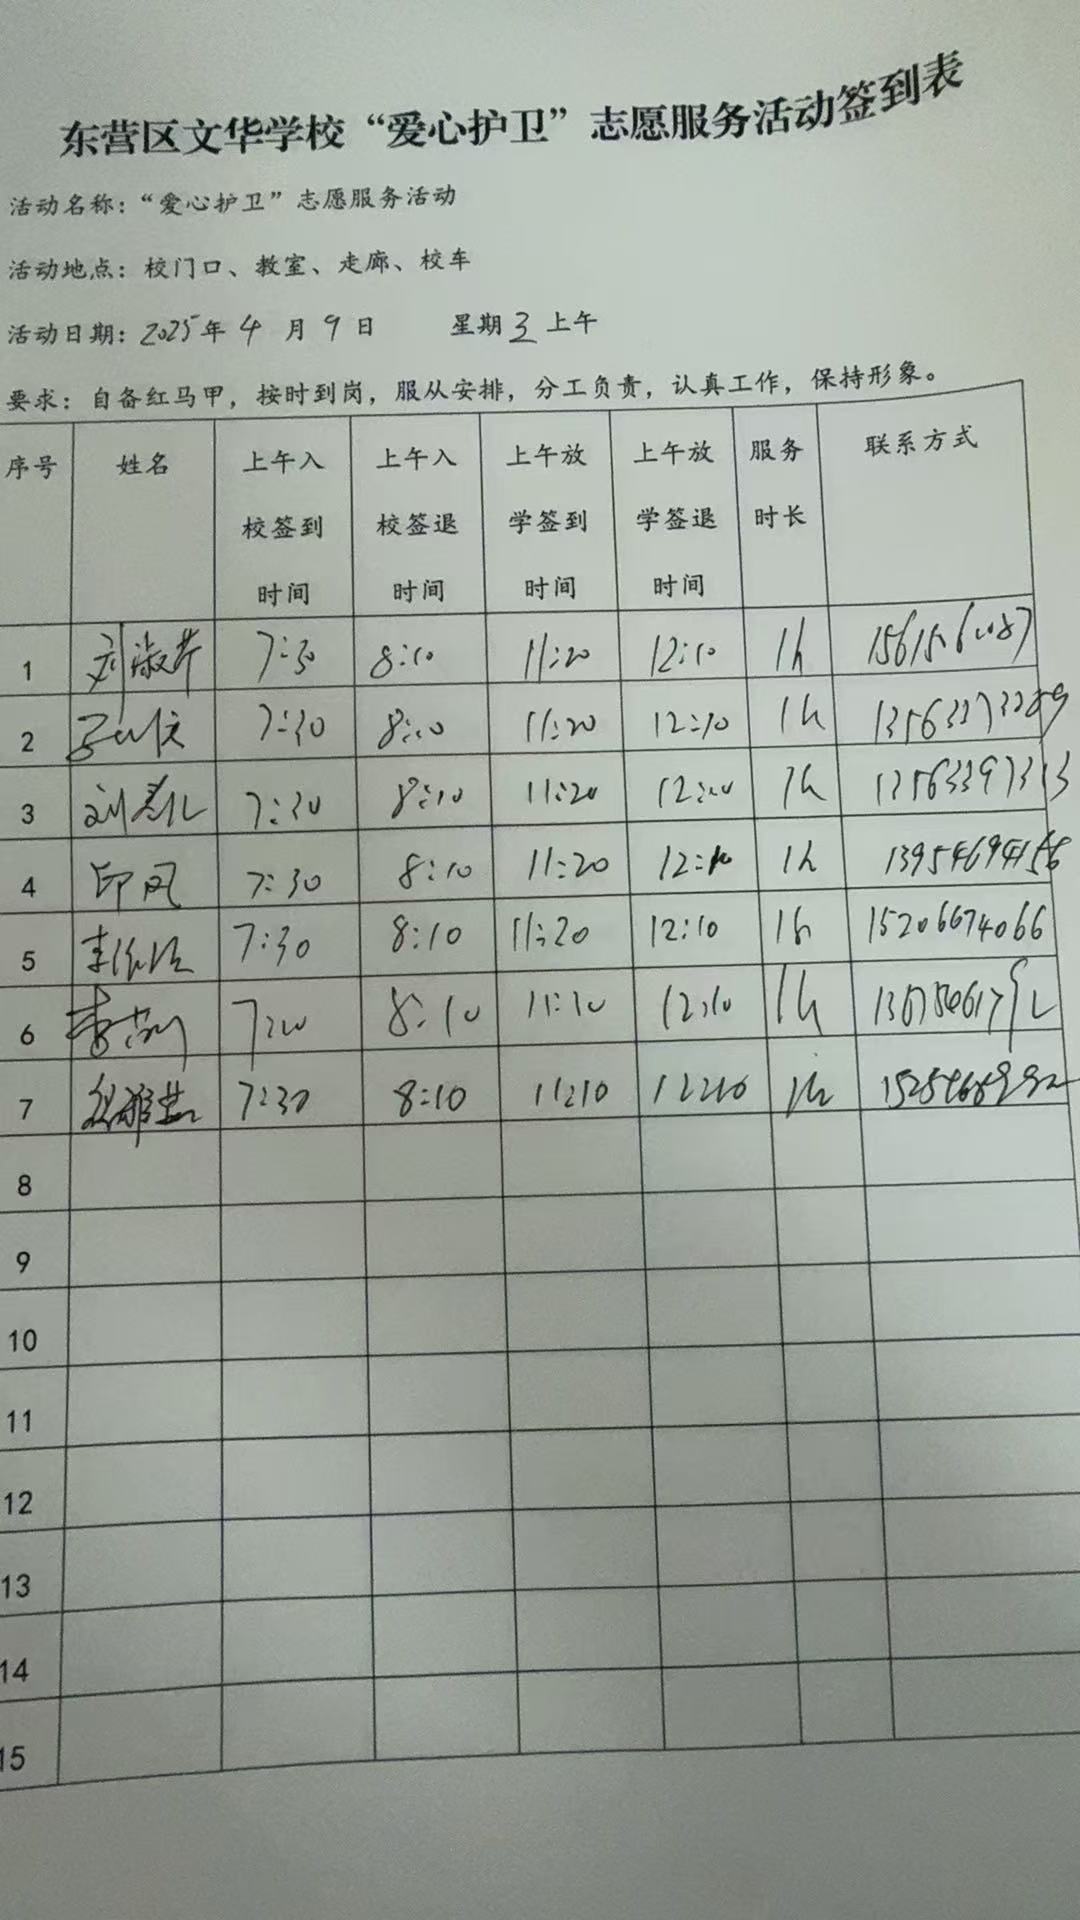 东营区文华学校“爱心护卫”志愿服务活动签到表
活动名称：“爱心护卫”志愿服务活动
活动地点：校门口、教室、走廊、校车
活动日期：2025年 4 月 9 日 星期 3 上午
要求：自备红马甲，按时到岗，服从安排，分工负责，认真工作，保持形象。
序号 姓名 上午入校签到时间 上午入校签退时间 上午放学签到时间 上午放学签退时间 服务时长 联系方式
1 刘淑芹 7:30 8:10 11:20 12:10 1h
2 7:30 8:10 11:20 12:10 1h
3 7:30 8:10 11:20 12:10 1h
4 印凤 7:30 8:10 11:20 12:10 1h 13954694156
5 7:30 8:10 11:20 12:10 1h 15206674066
6 8:10 11:10 12:10 1h
7 7:30 8:10 11:10 1h
8
9
10
11
12
13
14
15